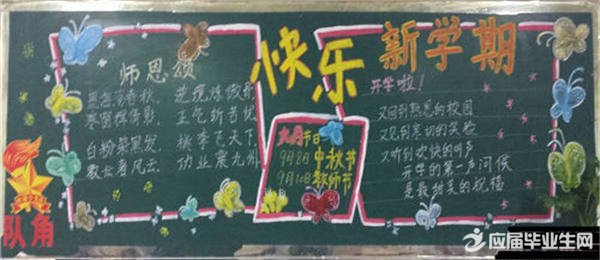 快乐
新学期
师恩颂
白粉染黑发,桃李飞天下
风云,功业震九州
九月节日
9月8日 中秋节
9月10日 教师节
开学啦!
又回到熟悉的校园
又见到亲切的笑脸
又听到欢快的叫声
开学的第一声问候
是最甜美的祝福
队角
应届毕业生网